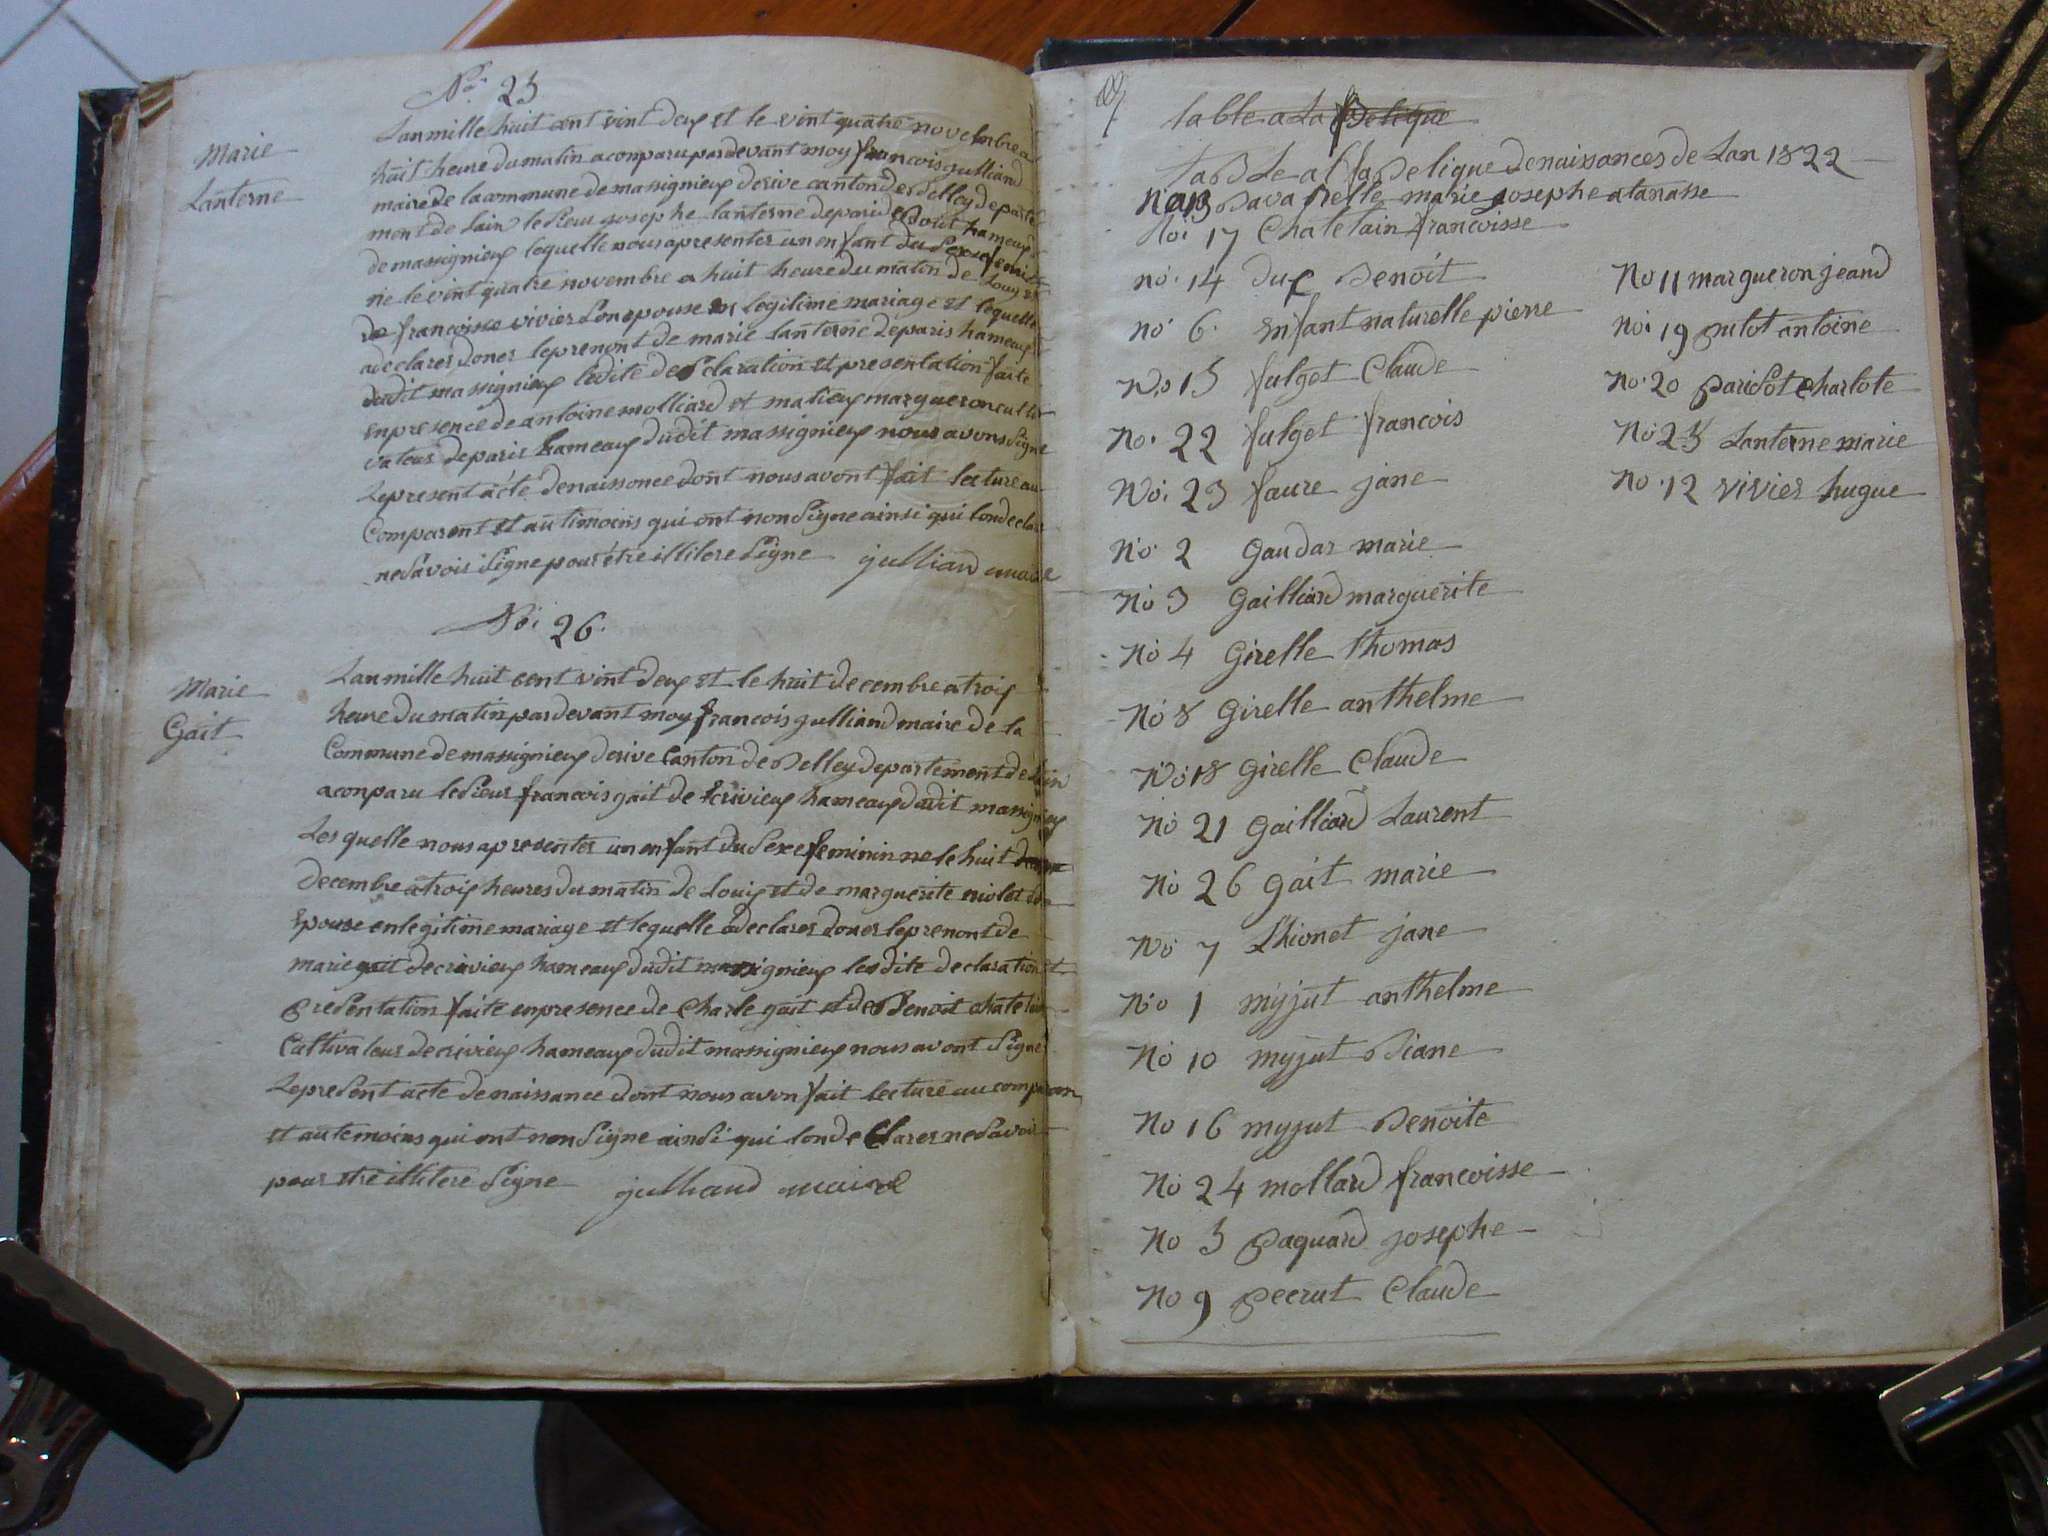 No. 25
Marie
Lanterne
Lan mille huit cent vint deux et le vint quatre novembre a
huit heure du matin a conparu par devant moy francois gulliand
maire de la commune de massignieux de rive canton de Belley departe
ment de lain le sieur josephe lanterne de paris hameaux
de massignieux lequelle nous a presenter un enfant du sexe
ne le vint quatre novembre a huit heure du matin de Louy et
de francoise vivier son epouse en legitime mariage et lequelle
a declarer doner le prenont de marie lanterne de paris hameaux
dudit massignieux ledite declaration et presentation faite
en presence de antoine molliard et matieux margueron culti
vateur de paris hameaux dudit massignieux nous avons signe
le present acte de naissance dont nous avont fait lecture au
comparent et au timoins qui ont non signe ainsi qui lon declare
ne savoir signe pour être illitere signe gulliand maire
No. 26.
Marie
Gait
Lan mille huit cent vint deux et le huit decembre a trois
heure du matin par devant moy francois gulliand maire de la
Commune de massignieux de rive Canton de Belley departement de lain
a conparu le sieur francois gait de Ecrivieux hameaux dudit massignieux
Les quelle nous a presenter un enfant du sexe feminin ne le huit
decembre a trois heures du matin de Louis et de marguerite niolet
Epouse en legitime mariage et lequelle a declarer doner le prenont de
marie gait de crivieux hameaux dudit massignieux les dite declaration et
presentation faite en presence de Charle gait et de Benoit chatelain
Cultivateur de crivieux hameaux dudit massignieux nous avont signe
Le present acte de naissance dont nous avon fait lecture au comparan
et au temoins qui ont non signe ainsi qui lon de Clarer ne savoir
pour etre illitere signe gulliand maire
table a La fabelique
tabLe alfabelique de naissances de Lan 1822
No 13 Bavarelle marie josephe atanasse
No. 17 Chatelain francoisse
no. 14 dux Benoit
no 6. Enfant naturelle pierre
No 15 fulget Claude
No. 22 fulget francois
No. 23 faure jane
No 2 Gaudar marie
No 3 Gailliard marguerite
No 4 Girelle thomas
No 8 Girelle anthelme
No 18 Girelle Claude
No 21 Gailliard Laurent
No 26 Gait marie
No 7 Lhionet jane
No 1 myjut anthelme
No 10 myjut Diane
No 16 myjut Benoite
No 24 mollard francoisse
No 5 Paquard josephe
No 9 Pecrut Claude
No 11 margueron jeand
No. 19 Pulot antoine
No. 20 Parisot Charlote
No 25 Lanterne marie
No. 12 vivier hugue